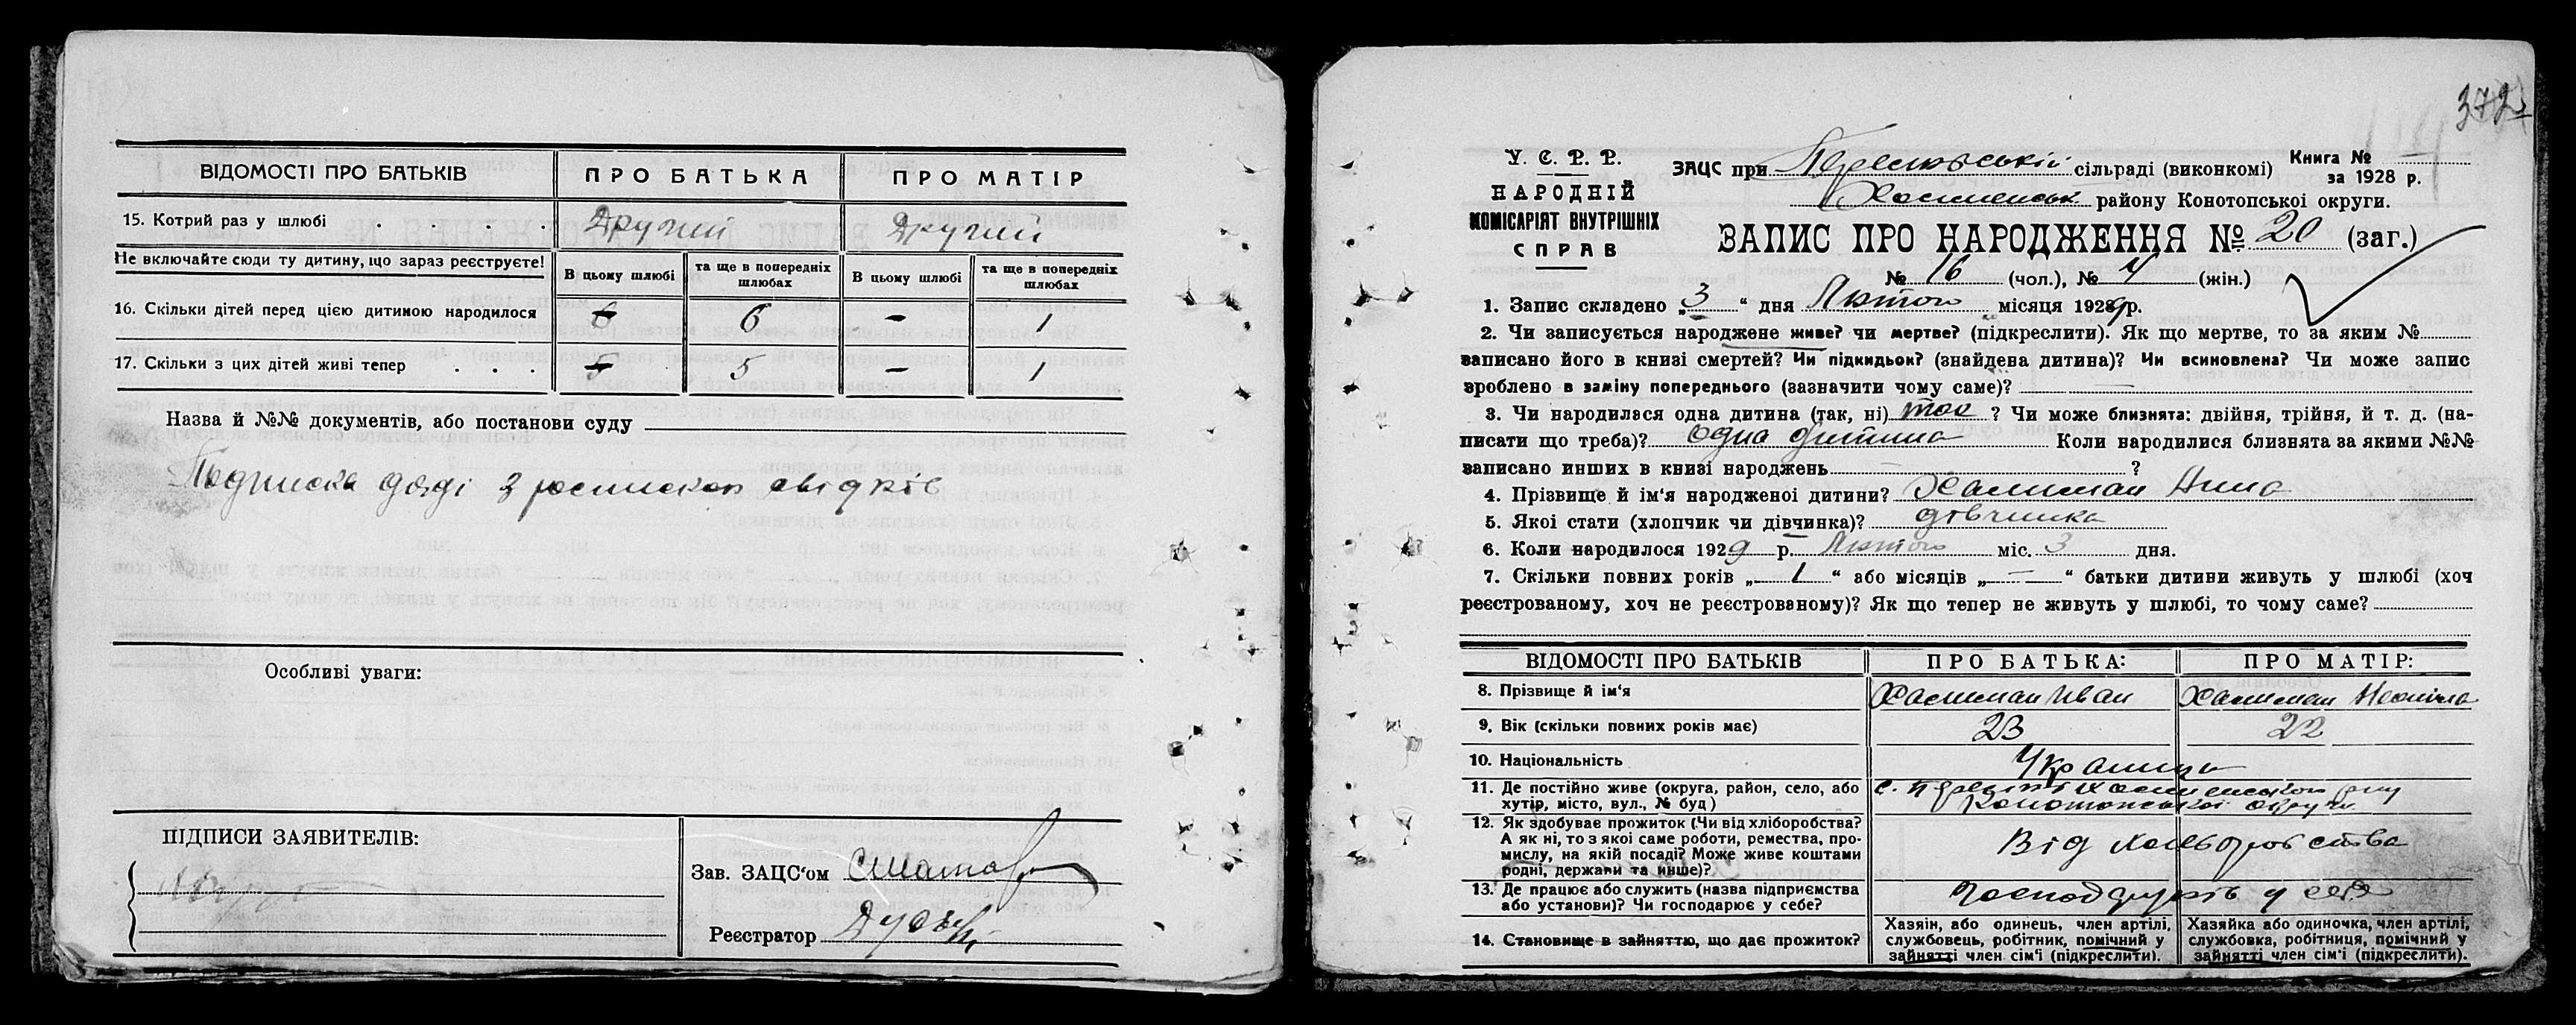 ВІДОМОСТІ ПРО БАТЬКІВ ПРО БАТЬКА ПРО МАТІР
15. Котрий раз у шлюбі . . . . Другий Другий
Не включайте сюди ту дитину, що зараз реєструєте! В цьому шлюбі та ще в попередніх шлюбах В цьому шлюбі та ще в попередніх шлюбах
16. Скільки дітей перед цією дитиною народилося 6 6 – 1
17. Скільки з цих дітей живі тепер . . . 5 5 – 1
Назва й №№ документів, або постанови суду
Подписка дяді з росписках свідків
Особливі уваги:
ПІДПИСИ ЗАЯВИТЕЛІВ:
Зав. ЗАЦС'ом
Реєстратор
372
У. С. Р. Р.
НАРОДНІЙ
КОМІСАРІЯТ ВНУТРІШНІХ
СПРАВ
ЗАЦС при сільраді (виконкомі) Книга № –
за 1928 р.
району Конотопської округи.
ЗАПИС ПРО НАРОДЖЕННЯ № 20 (заг.)
№ 16 (чол.), № 4 (жін.)
1. Запис складено „ 3 “ дня Лютого місяця 1929 р.
2. Чи записується народжене живе? чи мертве? (підкреслити). Як що мертве, то за яким №
записано його в книзі смертей? Чи підкидьок? (знайдена дитина)? Чи всиновлена? Чи може запис
зроблено в заміну попереднього (зазначити чому саме)? —
3. Чи народилася одна дитина (так, ні) так ? Чи може близнята: двійня, трійня, й т. д. (на-
писати що треба)? одна дитина Коли народилися близнята за якими №№
записано инших в книзі народжень — ?
4. Прізвище й ім'я народженої дитини? Халиман Нина
5. Якої стати (хлопчик чи дівчинка)? дівчинка
6. Коли народилося 1929 р. Лютого міс. 3 дня.
7. Скільки повних років „ 1 “ або місяців „ — “ батьки дитини живуть у шлюбі (хоч
реєстрованому, хоч не реєстрованому)? Як що тепер не живуть у шлюбі, то чому саме?
ВІДОМОСТІ ПРО БАТЬКІВ ПРО БАТЬКА: ПРО МАТІР:
8. Прізвище й ім'я Халиман Иван Халиман
9. Вік (скільки повних років має) 23 22
10. Національність Украинца
11. Де постійно живе (округа, район, село, або
хутір, місто, вул., № буд) с.
Конотопської округи
12. Як здобуває прожиток (Чи від хліборобства?
А як ні, то з якої саме роботи, ремества, про-
мислу, на якій посаді? Може живе коштами
родні, держави та инше)? Від хліборобства
13. Де працює або служить (назва підприємства
або установи)? Чи господарює у себе? господарюють у себе
14. Становище в зайняттю, що дає прожиток? Хазяін, або одинець, член артілі, службовець, робітник, помічний у зайнятті член сім'ї (підкреслити). Хазяйка або одиночка, член артілі, службовка, робітниця, помічний у зайнятті член сім'ї (підкреслити).